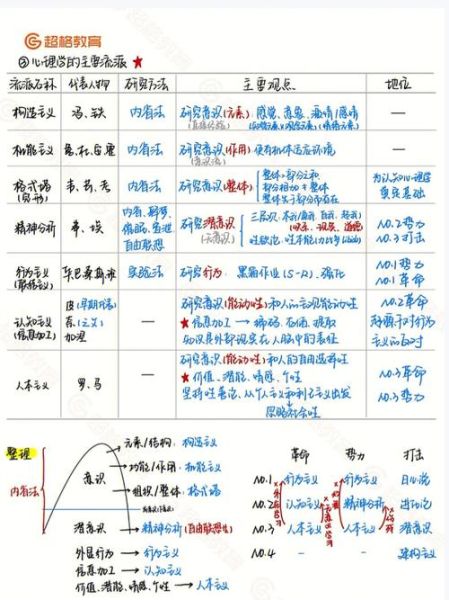 超格教育
②心理学的主要流派 ★
流派名称 代表人物 研究方法 主要观点 地位
构造主义 冯、铁 内省法 研究意识(元素) 感觉、意象、激情/感情 —
机能主义 内省法 研究意识(作用) 使有机体适应环境 —
(意识流)
格式塔 韦、苛、考 — 研究意识(整体) 整体>部分之和
(完形) 部分相加≠整体
整体先于部分而存在
为认知心理学
奠定基础
精神分析 弗、埃 内省、解梦、
自由联想
研究潜意识
(无意识)
三层次
性欲论
NO.2势力
NO.3打击
行为主义 实验法 研究行为 黑箱作业(S-R)、强化
NO.1势力
NO.1革命
认知主义
(信息加工)
皮(早期代表)
—
研究意识(能动性)和人的主观能动性
★信息加工→编码、存储、提取
知识是外部现实在人脑中的表征
NO.2革命
人本主义 罗、马 — 研究意识(能动性)和人的自由选择性
★价值、潜能、情感、个性
坚持性善论、从个人主义和利己主义出发
忽略社会性
NO.3革命
NO.3势力
整理
内省法
意识
潜意识
元素/结构：构造主义
功能/作用：机能主义
组织/整体：格式塔
精神分析(自由联想法)
外显行为→行为主义
信息加工→认知主义
价值、潜能、情感、个性→人本主义
革命 势力 打击
NO.1 行为主义 行为主义 日心说
NO.2 认知主义 精神分析 进化论
NO.3 人本主义 人本主义 潜意识
NO.4 — — 建构主义